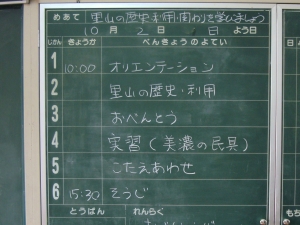 めあて 里山の歴史・利用・関わりを学びましょう
10月 2日 日よう日
じかん きょうか べんきょうのよてい
1 10:00 オリエンテーション
2 里山の歴史・利用
3 おべんとう
4 実習（美濃の民具）
5 こたえあわせ
6 15:30 そうじ
とうばん れんらく
もち